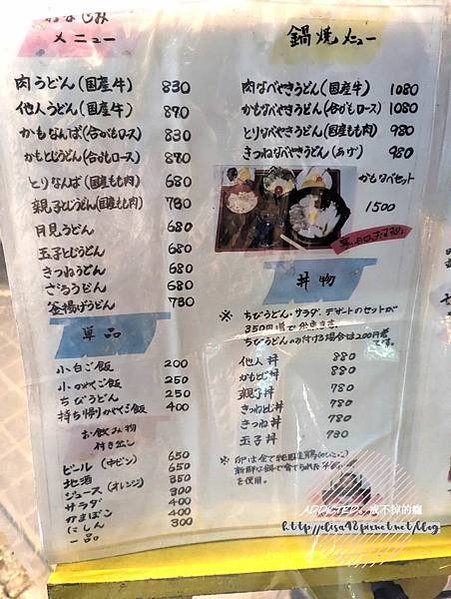 おなじみ
メニュー
肉うどん(国産牛) 830
他人うどん(国産牛) 870
かもなんば(合がもロース) 830
かもとじうどん(合がもロース) 870
とりなんば(国産もも肉) 680
親子とじうどん(国産もも肉) 780
月見うどん 680
玉子とじうどん 680
きつねうどん 680
ざるうどん 680
釜揚げうどん 780
単品
小白ご飯 200
小かやくご飯 250
ちびうどん 250
持ち帰りかやくご飯 400
お飲み物
付き出し
ビール(中ビン) 650
北酒 650
ジュース(オレンジ) 350
サラダ 300
かまぼこ 400
にしん 300
一品
鍋焼メニュー
肉なべやきうどん(国産牛) 1080
かもなべやきうどん(合がもロース) 1080
とりなべやきうどん(国産もも肉) 980
きつねなべやきうどん(あげ) 980
かもなべセット
1500
丼物
※ ちびうどん・サラダ、デザートのセットが
350円増で出来ます。
ちびうどんのみ付ける場合は200円増です。
他人丼 880
かもとじ丼 880
親子丼 780
きつねとじ丼 780
きつね丼 780
玉子丼 730
※ 卵は全て純国産鶏
を使用。
ADDICTED 戒不掉的癮
http://elisa98.pixnet.net/blog